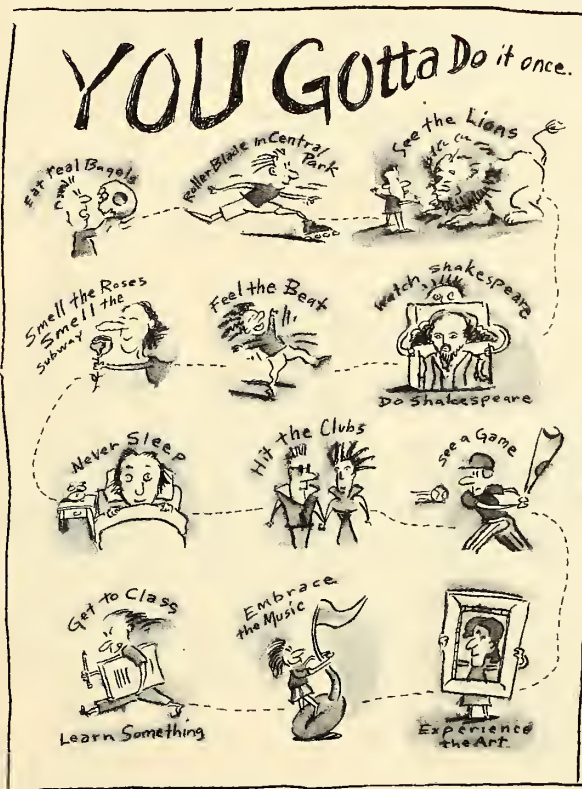 YOU Gotta Do it once.
Eat real Bagels
Roller Blade in Central
Park
See the Lions
Smell the Roses
Smell the
Subway
Feel the Beat
Watch Shakespeare
Do Shakespeare
Never Sleep
Hit the Clubs
See a Game
Get to Class
Learn Something
Embrace
the Music
Experience
the Art